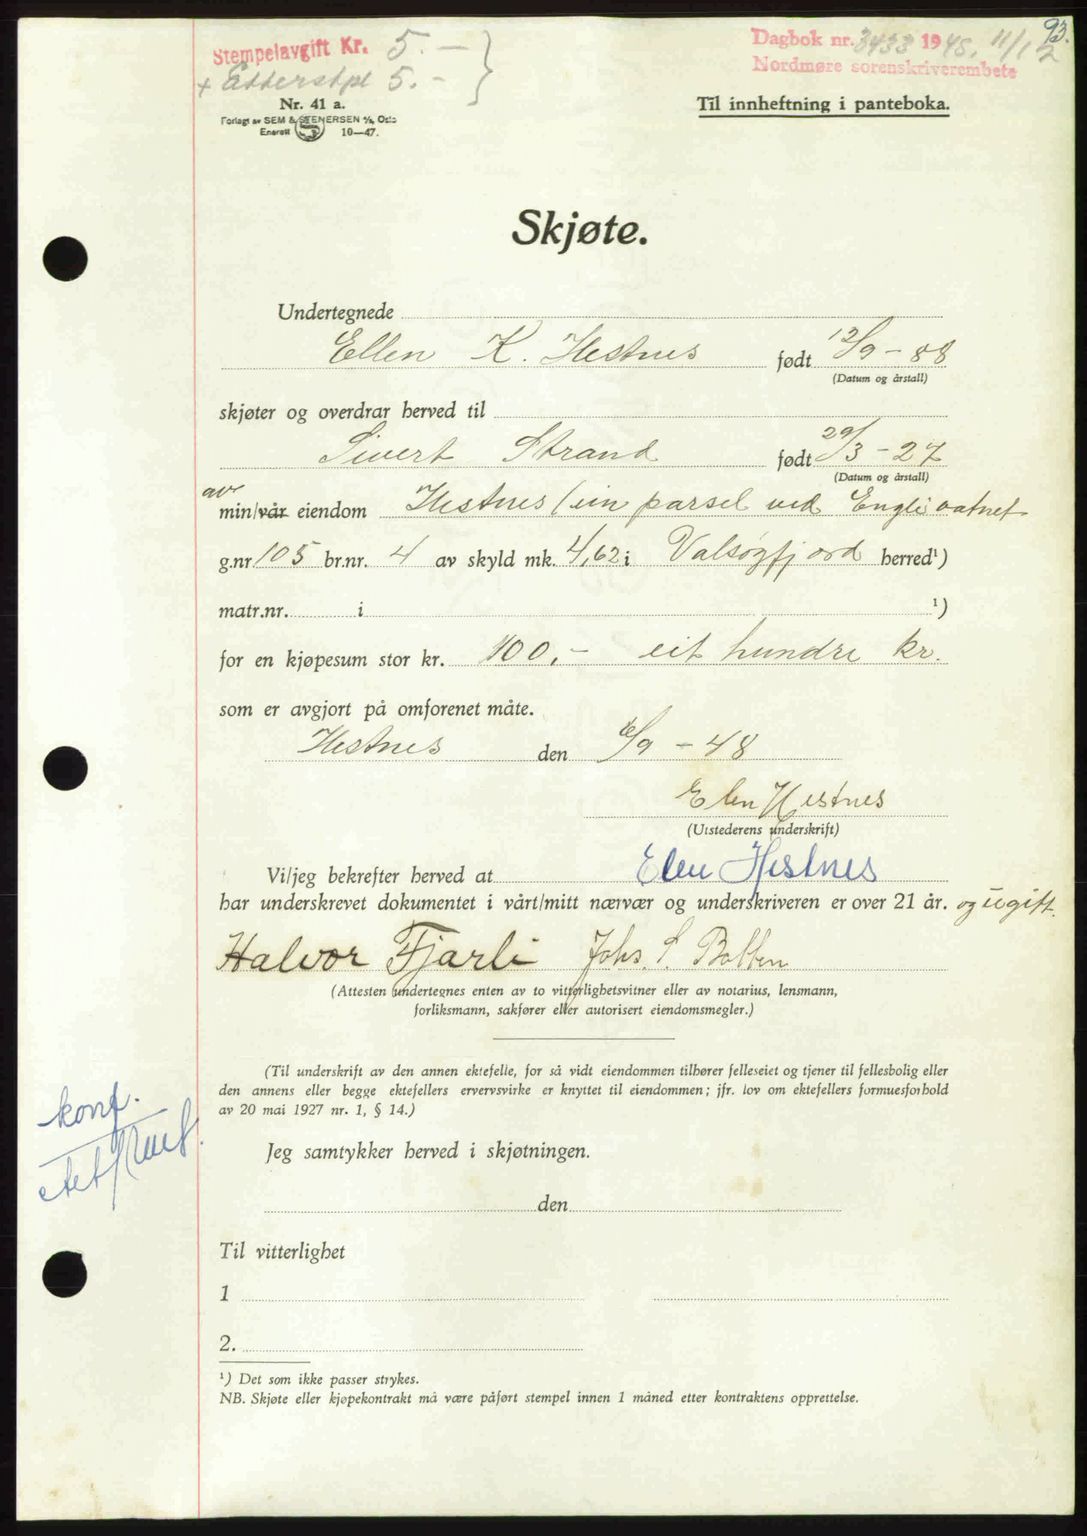 93.
Stempelavgift Kr. 5. –
+ Etterstpl 5. –
Dagbok nr. 3433 1948. 11/12
Nordmøre sorenskriverembete
Nr. 41 a.
Forlagt av SEM & STENERSEN A/S, Oslo
Enerett 10—47.
Til innheftning i panteboka.
Skjøte.
Undertegnede
Ellen K. Hestnes født 12/9 – 88
(Datum og årstall)
skjøter og overdrar herved til
Sivert Strand født 29/3 – 27
(Datum og årstall)
av
min/vår eiendom Hestnes (ein parsel ved Englivatnet
g.nr 105 br.nr. 4 av skyld mk. 4,62 i Valsøyfjord herred¹)
matr.nr. i ¹)
for en kjøpesum stor kr. 100,– eit hundre kr.
som er avgjort på omforenet måte.
Hestnes den 6/9 – 48
Elen Hestnes
(Utstederens underskrift)
Vi/jeg bekrefter herved at Elen Hestnes
har underskrevet dokumentet i vårt/mitt nærvær og underskriveren er over 21 år. og ugift.
Halvor Fjærli Johs. S. Botten
(Attesten undertegnes enten av to vitterlighetsvitner eller av notarius, lensmann,
forliksmann, sakfører eller autorisert eiendomsmegler.)
(Til underskrift av den annen ektefelle, for så vidt eiendommen tilhører felleseiet og tjener til fellesbolig eller
den annens eller begge ektefellers ervervsvirke er knyttet til eiendommen; jfr. lov om ektefellers formuesforhold
av 20 mai 1927 nr. 1, § 14.)
konf.
Jeg samtykker herved i skjøtningen.
den
Til vitterlighet
1
2.
¹) Det som ikke passer strykes.
NB. Skjøte eller kjøpekontrakt må være påført stempel innen 1 måned etter kontraktens opprettelse.